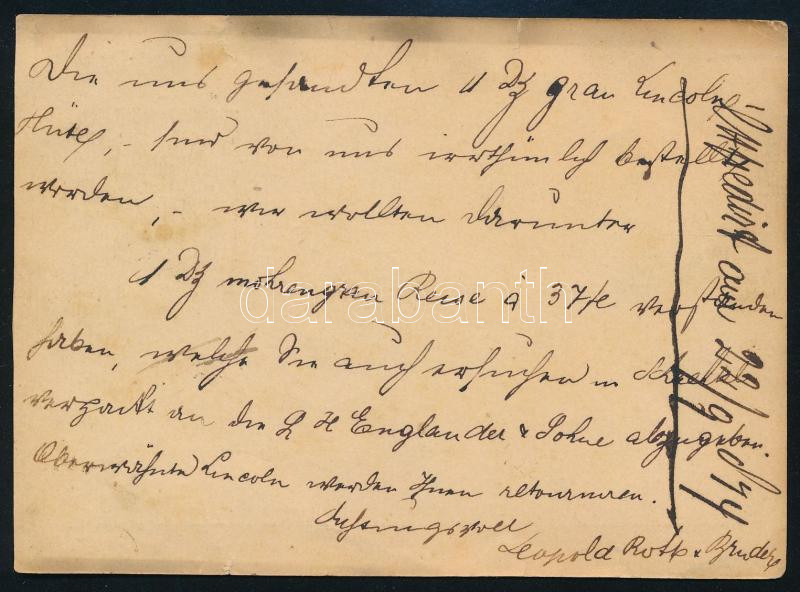 Die uns gesandten 1 Dz grau Lincoln
Hüte, - sind von uns irrthümlich bestellt
worden, - wir wollten darunter
1 Dz mohrengrau Reise á 37/e verstanden
haben, welche Sie auch ersuchen in Schachtel
verpackt an die H Englander & Sohne abzugeben.
Oberwähnte Lincoln werden Ihnen retourniren.
Achtungsvoll
Leopold Roth & Bruder
Expedirt am 22/9
darabanth